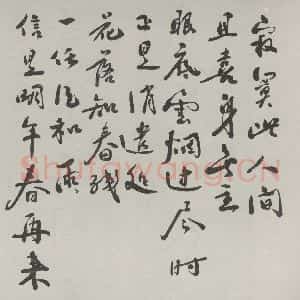 寂寞此人间
且喜身无主
眼底云烟过尽时
正是消遣处
花落知春残
一任风和雨
信是明年春再来
Shufawang.CN